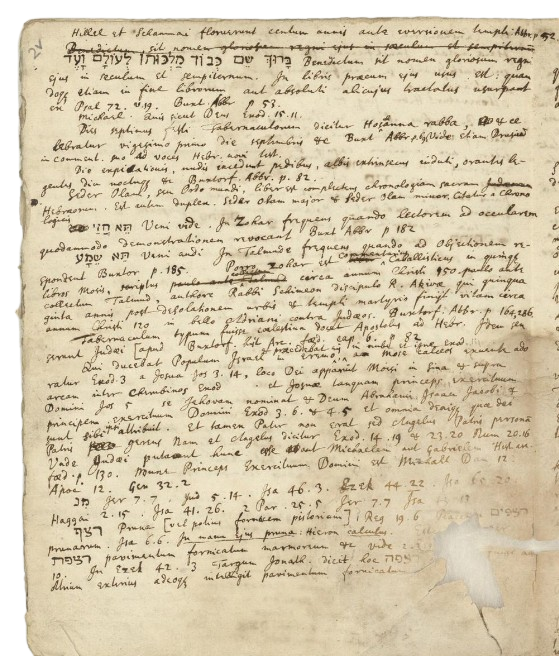 Hillel et Schammai floruerunt centum annis ante eversionem templi. Abbr p 52.
Benedictum sit nomen gloriosum regni ejus in sæculum et sempiternum
ברוך שם כבוד מלכותו לעולם ועד Benedictum sit nomen gloriosum regni
ejus in sæculum et sempiternum. In libris precum ejus usus est: quan
doqz etiam in fine librorum aut absoluti alicujus tractatus usurpant
ex Psal 72. v.19. Buxt. Abbr p 53.
Michael. Quis sicut Deus Exod. 15. 11.
Dies septimus festi Tabernaculorum dicitur Hosanna rabba, & ce
lebratur vigesimo primo die septembris &c Buxt Abbr. Vide etiam
in comment. mo ad voces Hebr. novi test.
Die expiationis, nudis incedunt pedibus, albis extrinsecus induti, orantes le-
gentes diu noctuqz &c Buxtorf. Abbr. p. 82.
Seder Olam, seu Ordo mundi, liber est complectens chronologiam sacram
Hebræorum. Est autem duplex. Seder Olam major & Seder Olam minor. Citatur a Chrono
logicis
תא חזי Veni vide. In Zohar frequens quando lectorem ad ocularem
quodammodo demonstrationem revocant Buxt Abbr p 182
תא שמע Veni audi In Talmude frequens quando ad Objectionem re-
spondent Buxtor p. 185. Zohar est commentarius Cabalisticus in quinqz
libros Mosis, scriptus circa annum Christi 150. paulo ante
collectum Talmud, authore Rabbi Schimeon discipulo R. Akivæ qui quinqua
ginta annis post desolationem urbis & templi martyrio finijt vitam circa
annum Christi 120 in bello Adriani contra Judæos. Buxtorf. Abbr. p 164, 286.
Tabernaculum typum fuisse cælestium docet Apostolus ad Hebr. Idem sen
serunt Judæi [apud Buxtorf. hist Arc. fœd. cap. 6. p. 82
Qui ducebat Populum Israel in Eremo, præcedebat in nube et igne Exod
a Mose calceos exuente ado
ratur Exod. 3 a Josua Jos 5. 14, loco Dei apparuit Mosi in Sina & supra
arcam inter Cherubinos Exod & Josuæ tanquam princeps exercituum
Domini Jos 5 se Jehovam nominat & Deum Abrahami, Isaaci Jacobi &
principem exercituum Domini Exod 3. 6. & 4. 5 et omnia deniqz quæ dei
sunt sibi attribuit. Et tamen Pater non erat sed Angelus Patris personam
Patris gerens Nam et Angelus dicitur Exod. 14. 19 & 23. 20 Num 20. 16
Unde Judæi putant hunc aut Michaelem aut Gabrielem Hist arc
fœd. p. 130. Princeps Exercituum Domini est Michael Dan 12.
Apoc 12. Gen 32. 2
מן Jer 7. 7. Jud 5. 14. Isa 46. 3. Ezek 44. 22. Isa 65. 20.
Haggai 2. 15. Isa 41. 26. 2 Par. 25. 5 Jer 7. 7 Isa
רצף Pruna [vel potius fornicem pistorium] 1 Reg 19. 6 רצפים
prunarum. Isa 6. 6. In manu ejus pruna: Hieron calculus.
רצפת pavimentum fornicatum marmoreum &c vide 2
10. In Ezek 42. 3 Targum Jonath. dicit loc רצפה
atrium exterius adeoqz intelligit pavimentum fornicatum